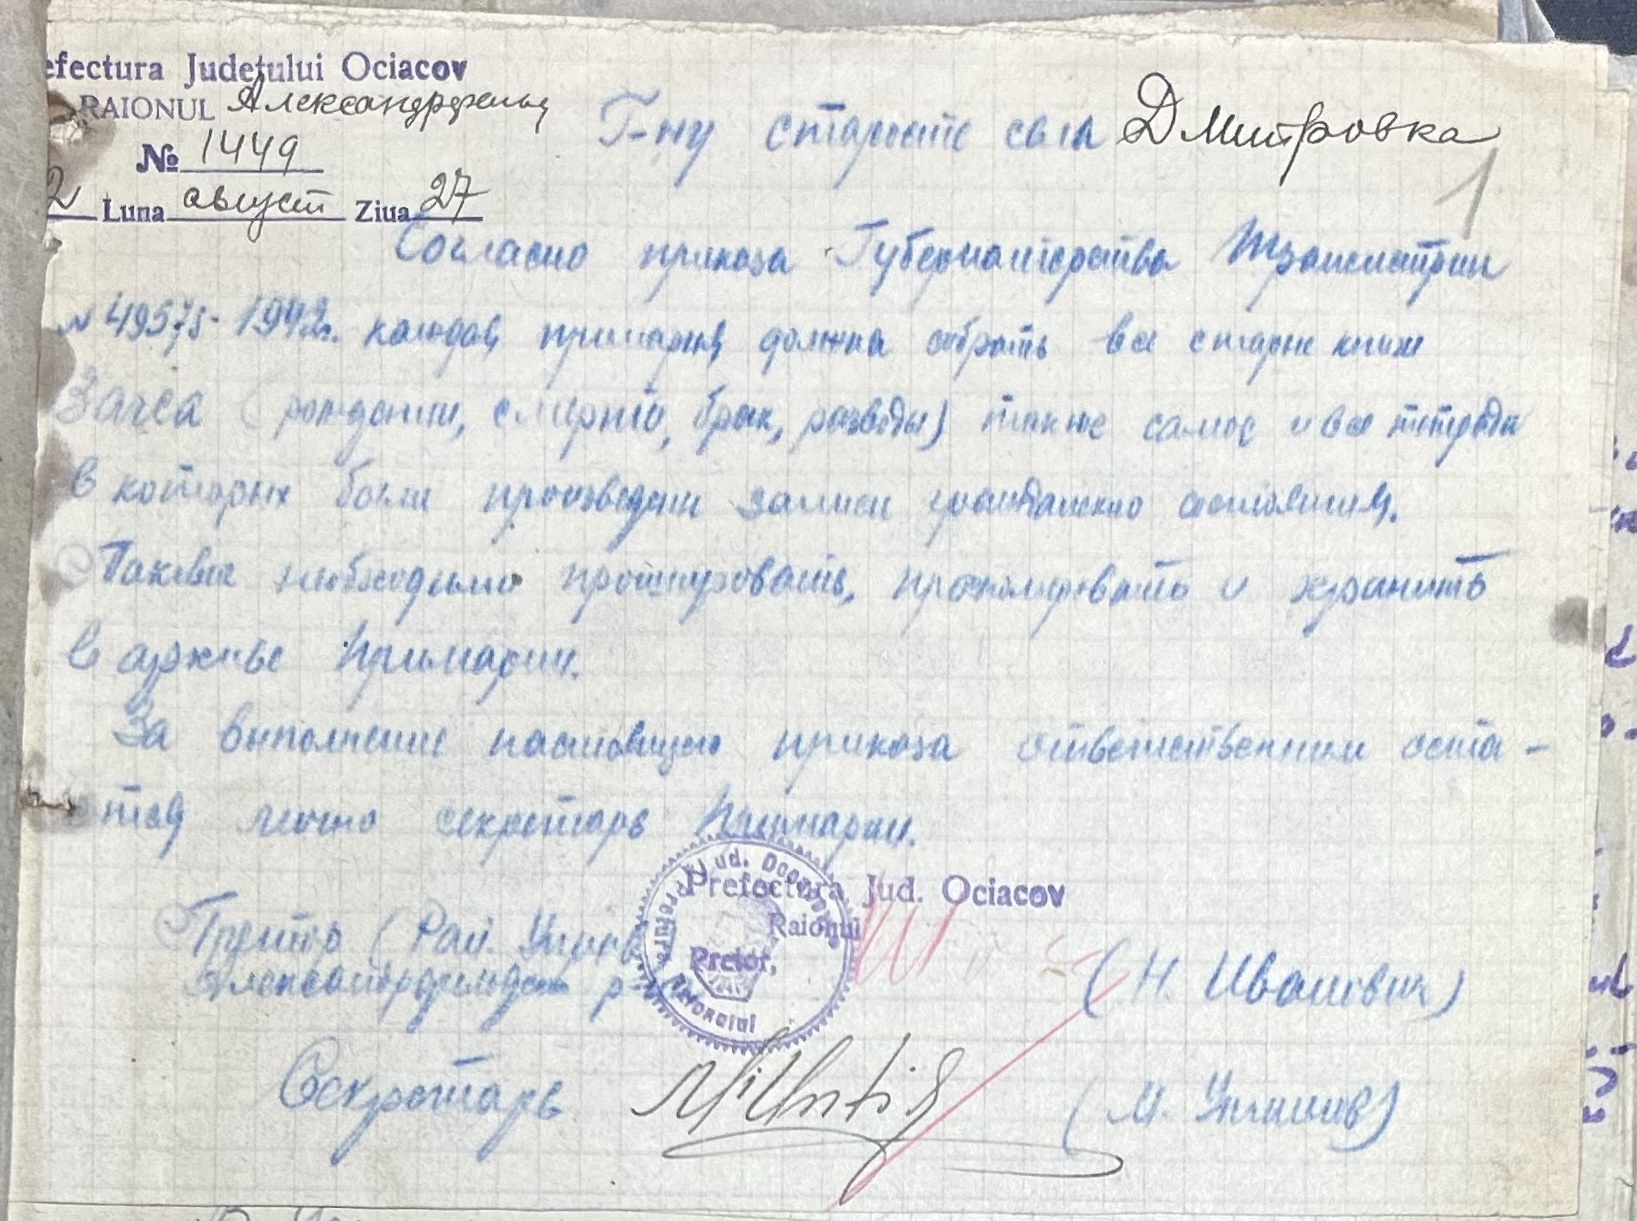 efectura Județului Ociacov
RAIONUL Александрфельд
№ 1449
2 Luna август Ziua 27
Г-ну старосте села Дмитровка
1
Согласно приказа Губернаторства Транснистрии
№ 1942г. каждая примария должна собрать все старые книги
Загса (рождении, смерти, брак, разводы) также самое и все тетради
в которых были произведены записи гражданского состояния.
Таковые необходимо прошнуровать, пронумеровать и хранить
в архиве Примарии.
За выполнение настоящего приказа ответственным оста-
ется лично секретарь Примарии.
Prefectura Jud. Ociacov
Raionul
Pretor,
Претор (Рай. Управ
Александрфельдского р-
(Н. Иванович)
Секретарь
(М.